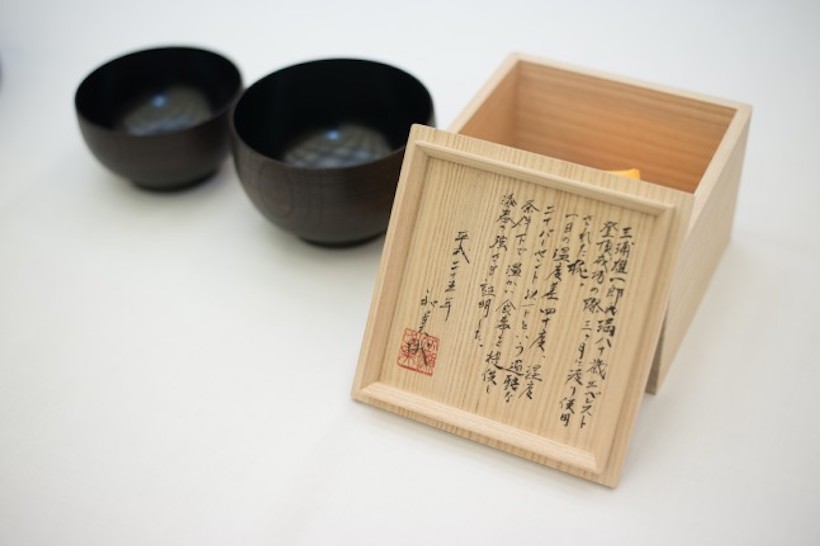 三浦雄一郎氏満八十歳エベレスト
登頂成功の際三ヶ月に渡り使用
された椀。
一日の温度差四十度、湿度
二十パーセント以下という過酷な
条件下で温かい食事を提供し
漆器の強さを証明した。
平成二十五年